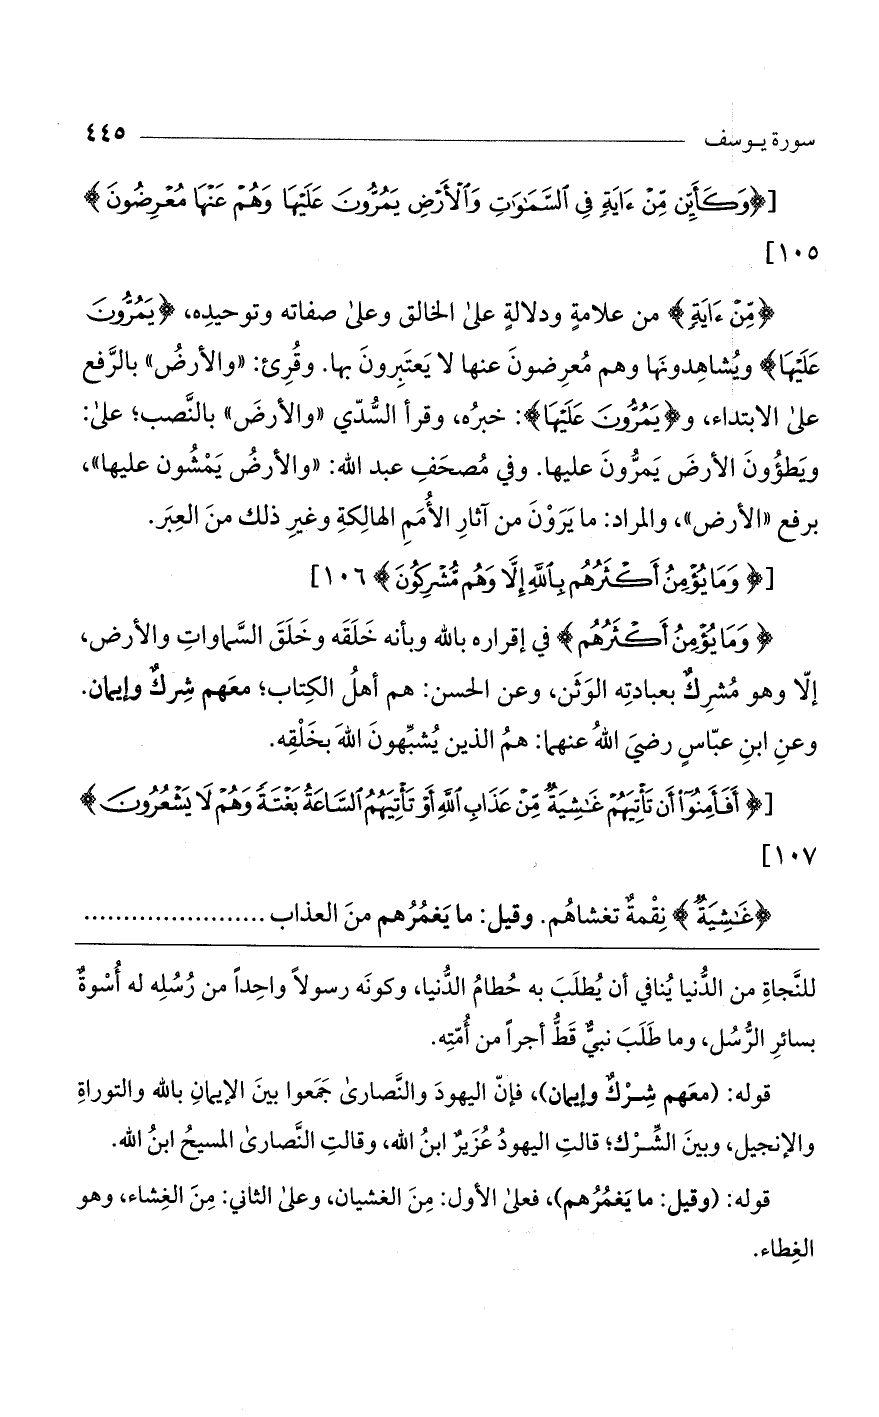 سورة يوسف ٤٤٥
[﴿وَكَأَيِّن مِّنْ ءَايَةٍ فِى ٱلسَّمَٰوَٰتِ وَٱلْأَرْضِ يَمُرُّونَ عَلَيْهَا وَهُمْ عَنْهَا مُعْرِضُونَ﴾
١٠٥]
﴿مِّنْ ءَايَةٍ﴾ من علامةٍ ودلالةٍ علىٰ الخالق وعلىٰ صفاته وتوحيدِه، ﴿يَمُرُّونَ
عَلَيْهَا﴾ ويُشاهِدونَها وهم مُعرِضونَ عنها لا يَعتَبِرونَ بها. وقُرِئ: «والأرضُ» بالرَّفع
علىٰ الابتداء، و﴿يَمُرُّونَ عَلَيْهَا﴾: خبرُه، وقرأ السُّدّي «والأرضَ» بالنَّصب؛ علىٰ:
ويَطؤُونَ الأرضَ يَمرُّونَ عليها. وفي مُصحَفِ عبد الله: «والأرضُ يَمْشُون عليها»،
برفع «الأرض»، والمراد: ما يَرَوْنَ من آثارِ الأُمَمِ الهالِكةِ وغيرِ ذلك منَ العِبَر.
[﴿وَمَا يُؤْمِنُ أَكْثَرُهُم بِٱللَّهِ إِلَّا وَهُم مُّشْرِكُونَ﴾ ١٠٦]
﴿وَمَا يُؤْمِنُ أَكْثَرُهُم﴾ في إقراره بالله وبأنه خَلَقَه وخَلَقَ السَّماواتِ والأرض،
إلّا وهو مُشرِكٌ بعبادتِه الوَثَن، وعن الحسن: هم أهلُ الكِتاب؛ معَهم شِركٌ وإيمان.
وعنِ ابنِ عبّاسٍ رضيَ اللهُ عنهما: همُ الذين يُشبِّهونَ اللهَ بخَلْقِه.
[﴿أَفَأَمِنُوٓا۟ أَن تَأْتِيَهُمْ غَٰشِيَةٌ مِّنْ عَذَابِ ٱللَّهِ أَوْ تَأْتِيَهُمُ ٱلسَّاعَةُ بَغْتَةً وَهُمْ لَا يَشْعُرُونَ﴾
١٠٧]
﴿غَٰشِيَةٌ﴾ نِقْمةٌ تغشاهُم. وقيل: ما يَغمُرُهم منَ العذاب .......................
للنَّجاةِ من الدُّنيا يُنافي أن يُطلَبَ به حُطامُ الدُّنيا، وكونَه رسولاً واحِداً من رُسُلِه له أُسْوةٌ
بسائرِ الرُّسُل، وما طَلَبَ نبيٌّ قَطُّ أجراً من أُمّتِه.
قوله: (معَهم شِرْكٌ وإيمان)، فإنّ اليهودَ والنَّصارىٰ جَمَعوا بينَ الإيمانِ بالله والتوراةِ
والإنجيل، وبينَ الشِّرْك؛ قالتِ اليهودُ عُزَيرٌ ابنُ الله، وقالتِ النَّصارىٰ المسيحُ ابنُ الله.
قوله: (وقيل: ما يَغمُرُهم)، فعلىٰ الأول: مِنَ الغشيان، وعلىٰ الثاني: مِنَ الغِشاء، وهو
الغِطاء.